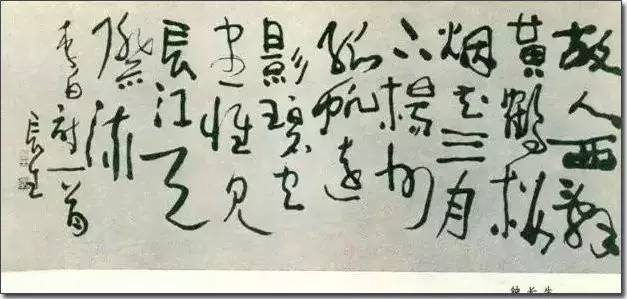 故人西辭
黃鶴楼
烟花三月
下揚州
孤帆遠
影碧空
盡惟見
長江天
際流
李白詩一首
長生